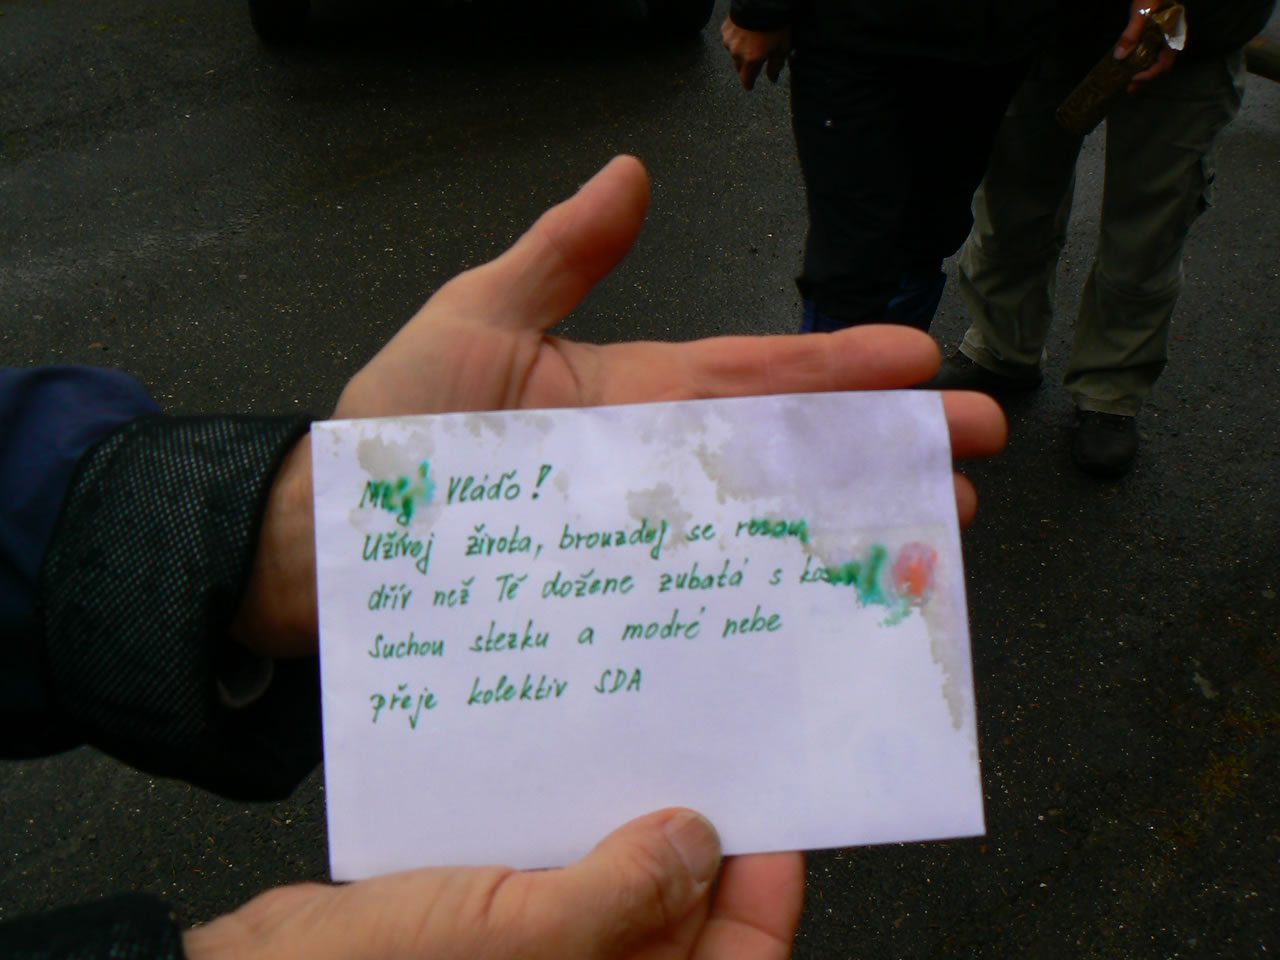 Vláďo!
Užívej života, brouzdej se rosou,
dřív než Tě dožene zubatá s kosou
Suchou stezku a modré nebe
přeje kolektiv SDA